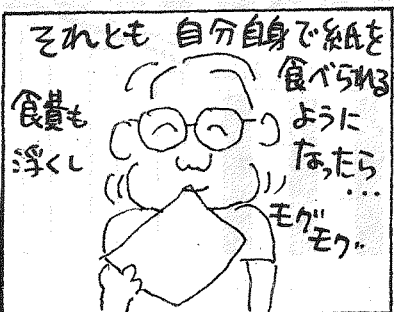 それとも 自分自身で紙を
食べられる
ように
なったら
・・・
食費も
浮くし
モグ
モグ